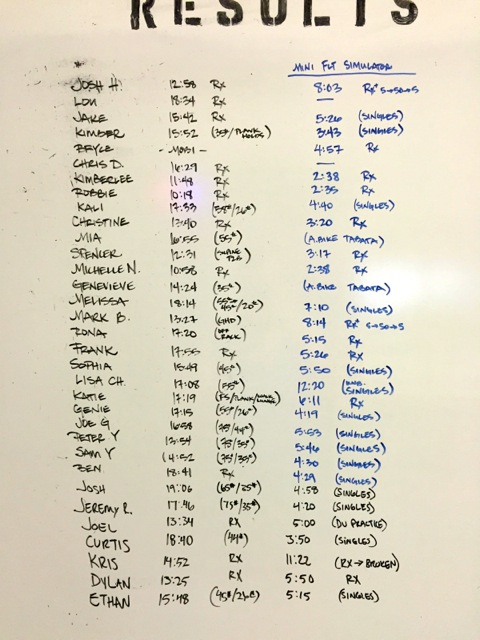 RESULTS
MINI FLT SIMULATOR
JOSH H. 12:58 Rx 8:03 Rx+ 5→50→5
LOU 18:34 Rx —
JAKE 15:42 Rx 5:26 (SINGLES)
KIMBER 15:52 (35#/PLANK HOLDS) 3:43 (SINGLES)
BRYCE - MOBI - 4:57 Rx
CHRIS D. 16:29 Rx —
KIMBERLEE 11:48 Rx 2:38 Rx
ROBBIE 10:18 Rx 2:35 Rx
KALI 17:33 (55#/26#) 4:40 (SINGLES)
CHRISTINE 13:40 Rx 3:20 Rx
MIA 16:55 (55#) (A.BIKE TABATA)
SPENCER 12:31 3:17 Rx
MICHELLE N. 10:58 Rx 2:38 Rx
GENEVIEVE 14:24 (35#) (A.BIKE TABATA)
MELISSA 18:14 7:10 (SINGLES)
MARK B. 13:27 (GHD) 8:14 Rx+ 5→50→5
RONA 17:20 5:15 Rx
FRANK 17:55 Rx 5:26 Rx
SOPHIA 15:49 (45#) 5:50 (SINGLES)
LISA CH. 17:08 (55#) 12:20 (SINGLES)
KATIE 17:19 6:11 Rx
GENIE 17:15 (55#/26#) 4:19 (SINGLES)
JOE G 16:58 (75#/44#) 5:53 (SINGLES)
PETER Y 13:54 (75#/53#) 5:46 (SINGLES)
SAM Y 14:52 (75#/35#) 4:30 (SINGLES)
BEN 18:41 Rx 4:29 (SINGLES)
JOSH 19:06 (65#/35#) 4:58 (SINGLES)
JEREMY R. 17:46 (75#/35#) 4:20 (SINGLES)
JOEL 13:34 RX 5:00 (DU PRACTICE)
CURTIS 18:40 (44#) 3:50 (SINGLES)
KRIS 14:52 RX 11:22 (RX→BROKEN)
DYLAN 13:25 RX 5:50 RX
ETHAN 15:48 5:15 (SINGLES)